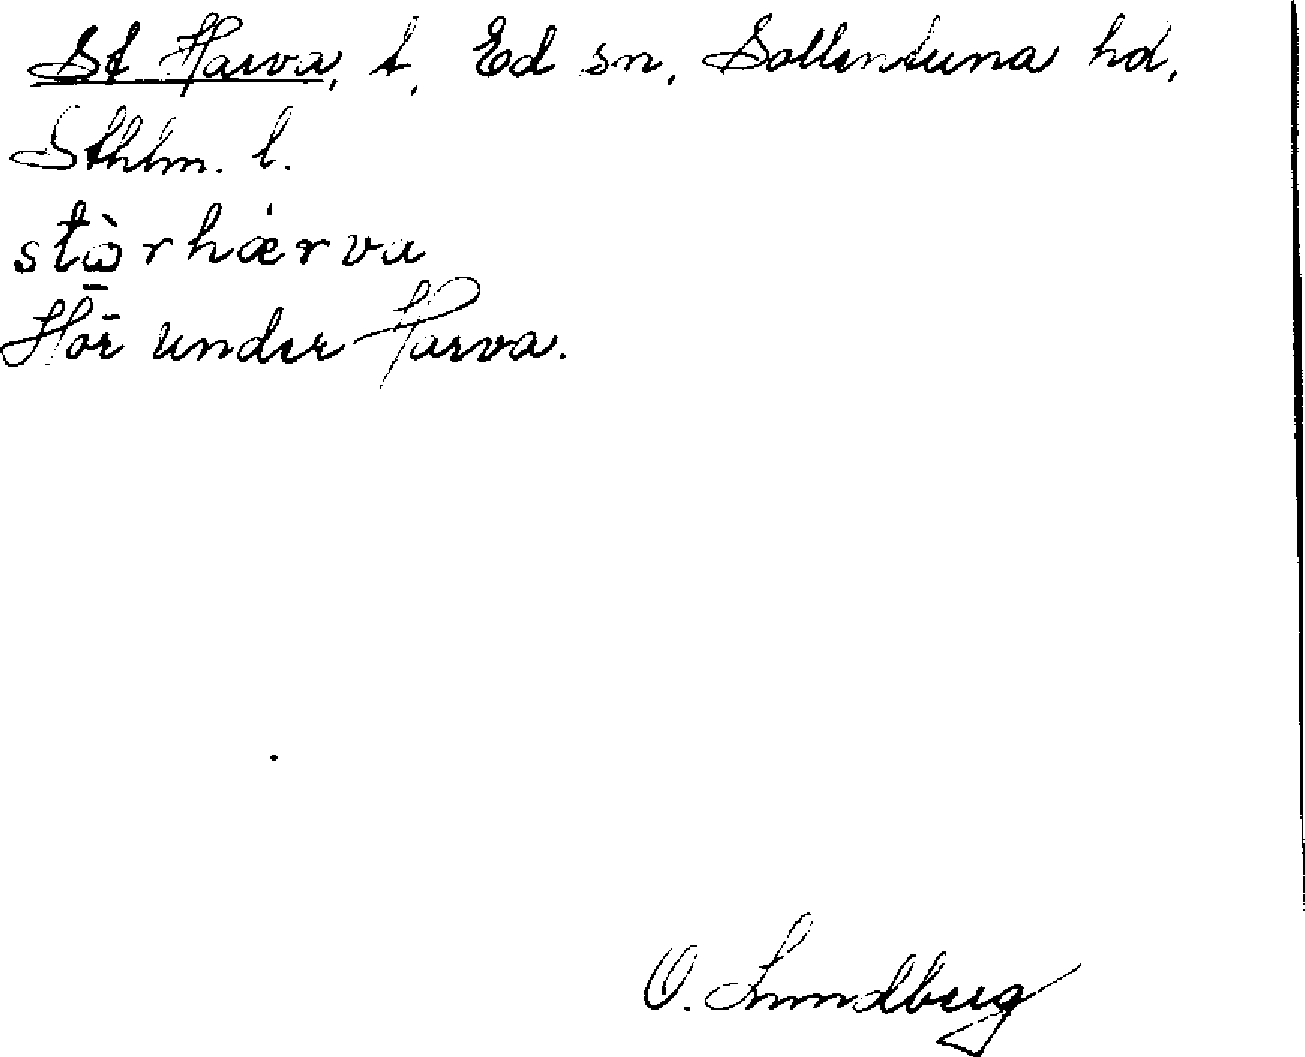 St Harva, t, Ed sn, Sollentuna hd,
Sthlm. l.
stὼ̲rhárva
Hör under Harva.
O. Lundberg